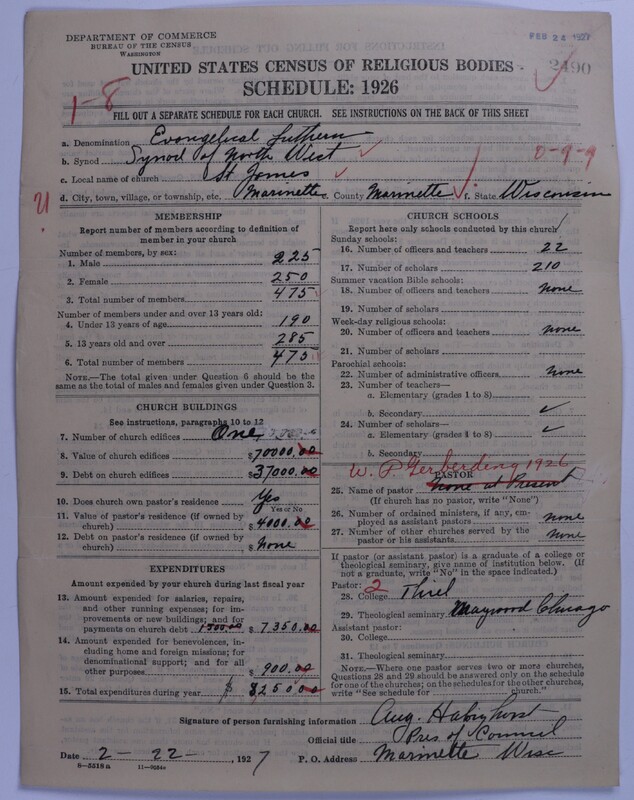 DEPARTMENT OF COMMERCE
BUREAU OF THE CENSUS
WASHINGTON
FEB 24 1927
2490
UNITED STATES CENSUS OF RELIGIOUS BODIES
SCHEDULE: 1926
1-8
FILL OUT A SEPARATE SCHEDULE FOR EACH CHURCH. SEE INSTRUCTIONS ON THE BACK OF THIS SHEET
a. Denomination Evangelical Luthern
b. Synod Synod of North West
0-9-9
c. Local name of church St James
d. City, town, village, or township, etc. Marinette County Marinette f. State Wisconsin
MEMBERSHIP
Report number of members according to definition of member in your church
Number of members, by sex:
1. Male 225
2. Female 250
3. Total number of members 475
Number of members under and over 13 years old:
4. Under 13 years of age 190
5. 13 years old and over 285
6. Total number of members 475
NOTE.—The total given under Question 6 should be the same as the total of males and females given under Question 3.
CHURCH BUILDINGS
See instructions, paragraphs 10 to 12
7. Number of church edifices One
8. Value of church edifices $70000.00
9. Debt on church edifices $37000.00
10. Does church own pastor's residence? Yes
Yes or No
11. Value of pastor's residence (if owned by church) $4000.00
12. Debt on pastor's residence (if owned by church) $ None
EXPENDITURES
Amount expended by your church during last fiscal year
13. Amount expended for salaries, repairs, and other running expenses; for improvements or new buildings; and for payments on church debt $7350.00
14. Amount expended for benevolences, including home and foreign missions; for denominational support; and for all other purposes $900.00
15. Total expenditures during year $ 8250.00
CHURCH SCHOOLS
Report here only schools conducted by this church
Sunday schools:
16. Number of officers and teachers 22
17. Number of scholars 210
Summer vacation Bible schools:
18. Number of officers and teachers none
19. Number of scholars
Week-day religious schools:
20. Number of officers and teachers none
21. Number of scholars
Parochial schools:
22. Number of administrative officers none
23. Number of teachers—
a. Elementary (grades 1 to 8)
b. Secondary
24. Number of scholars—
a. Elementary (grades 1 to 8)
b. Secondary
W. P. Gerberding 1926
PASTOR
25. Name of pastor none at present
(If church has no pastor, write "None")
26. Number of ordained ministers, if any, employed as assistant pastors none
27. Number of other churches served by the pastor or his assistants none
If pastor (or assistant pastor) is a graduate of a college or theological seminary, give name of institution below. (If not a graduate, write "No" in the space indicated.)
Pastor: 2
28. College Thiel
29. Theological seminary Maywood Chicago
Assistant pastor:
30. College
31. Theological seminary
NOTE.—Where one pastor serves two or more churches, Questions 28 and 29 should be answered only on the schedule for one of the churches; on the schedules for the other churches, write "See schedule for church."
Signature of person furnishing information Aug. Habighorst
Official title Pres. of Council
Date 2-22-, 1927 P. O. Address Marinette Wisc
8-5518a 11-9034